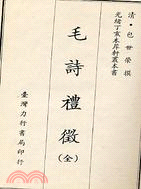 清·包世榮撰
光緒丁亥木犀軒叢本書
毛詩禮徵
(全)
臺灣力行書局印行